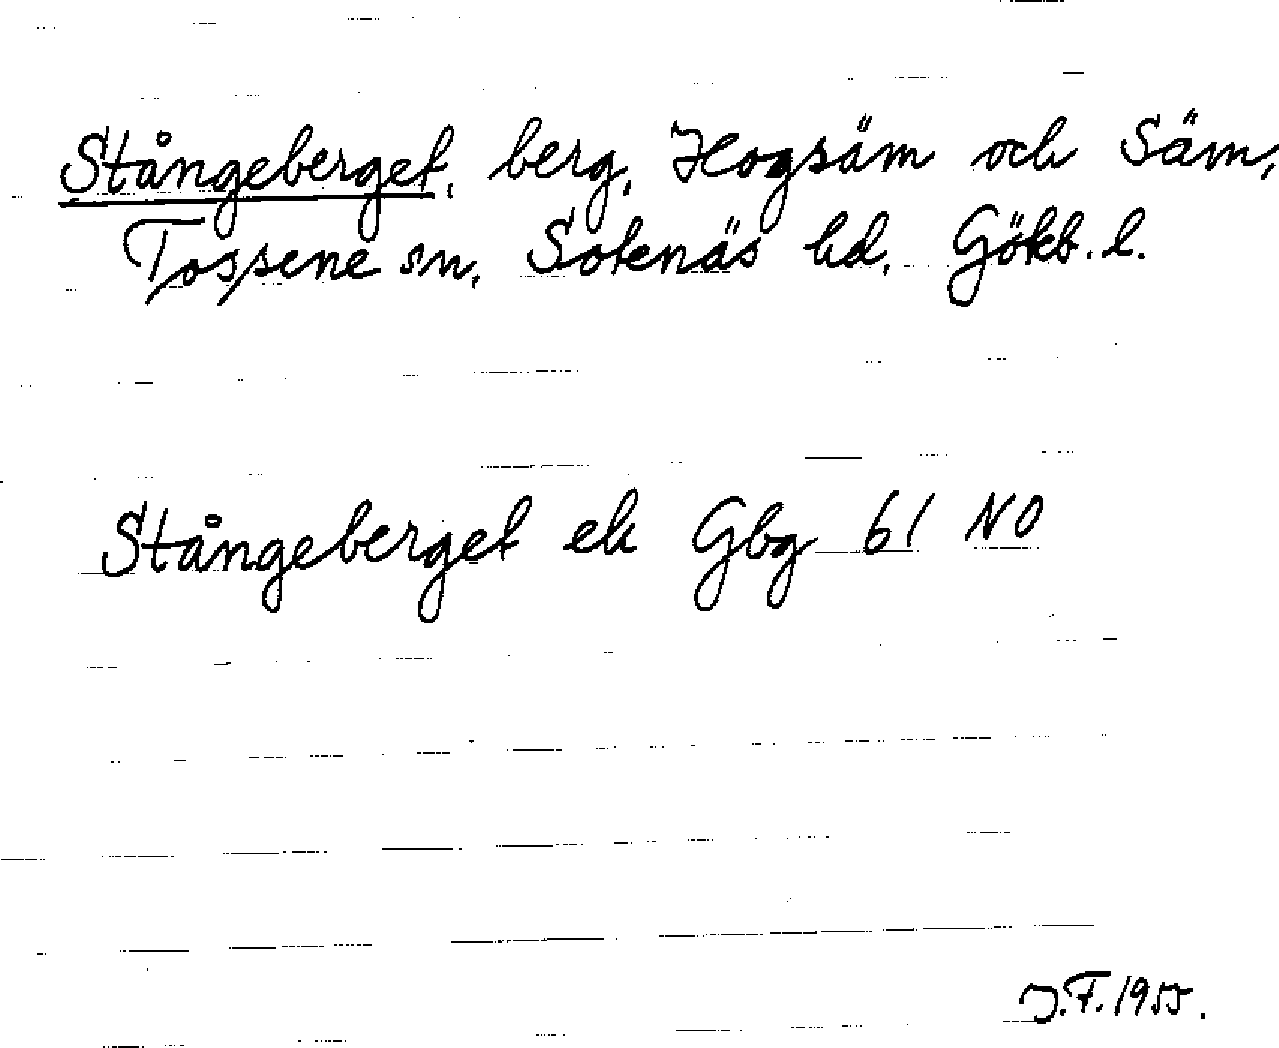 Stångeberget, berg, Hogsäm och Säm,
Tossene sn, Sotenäs hd, Göteb. l.
Stångeberget ek Gbg 61 NO
J.F. 1955.